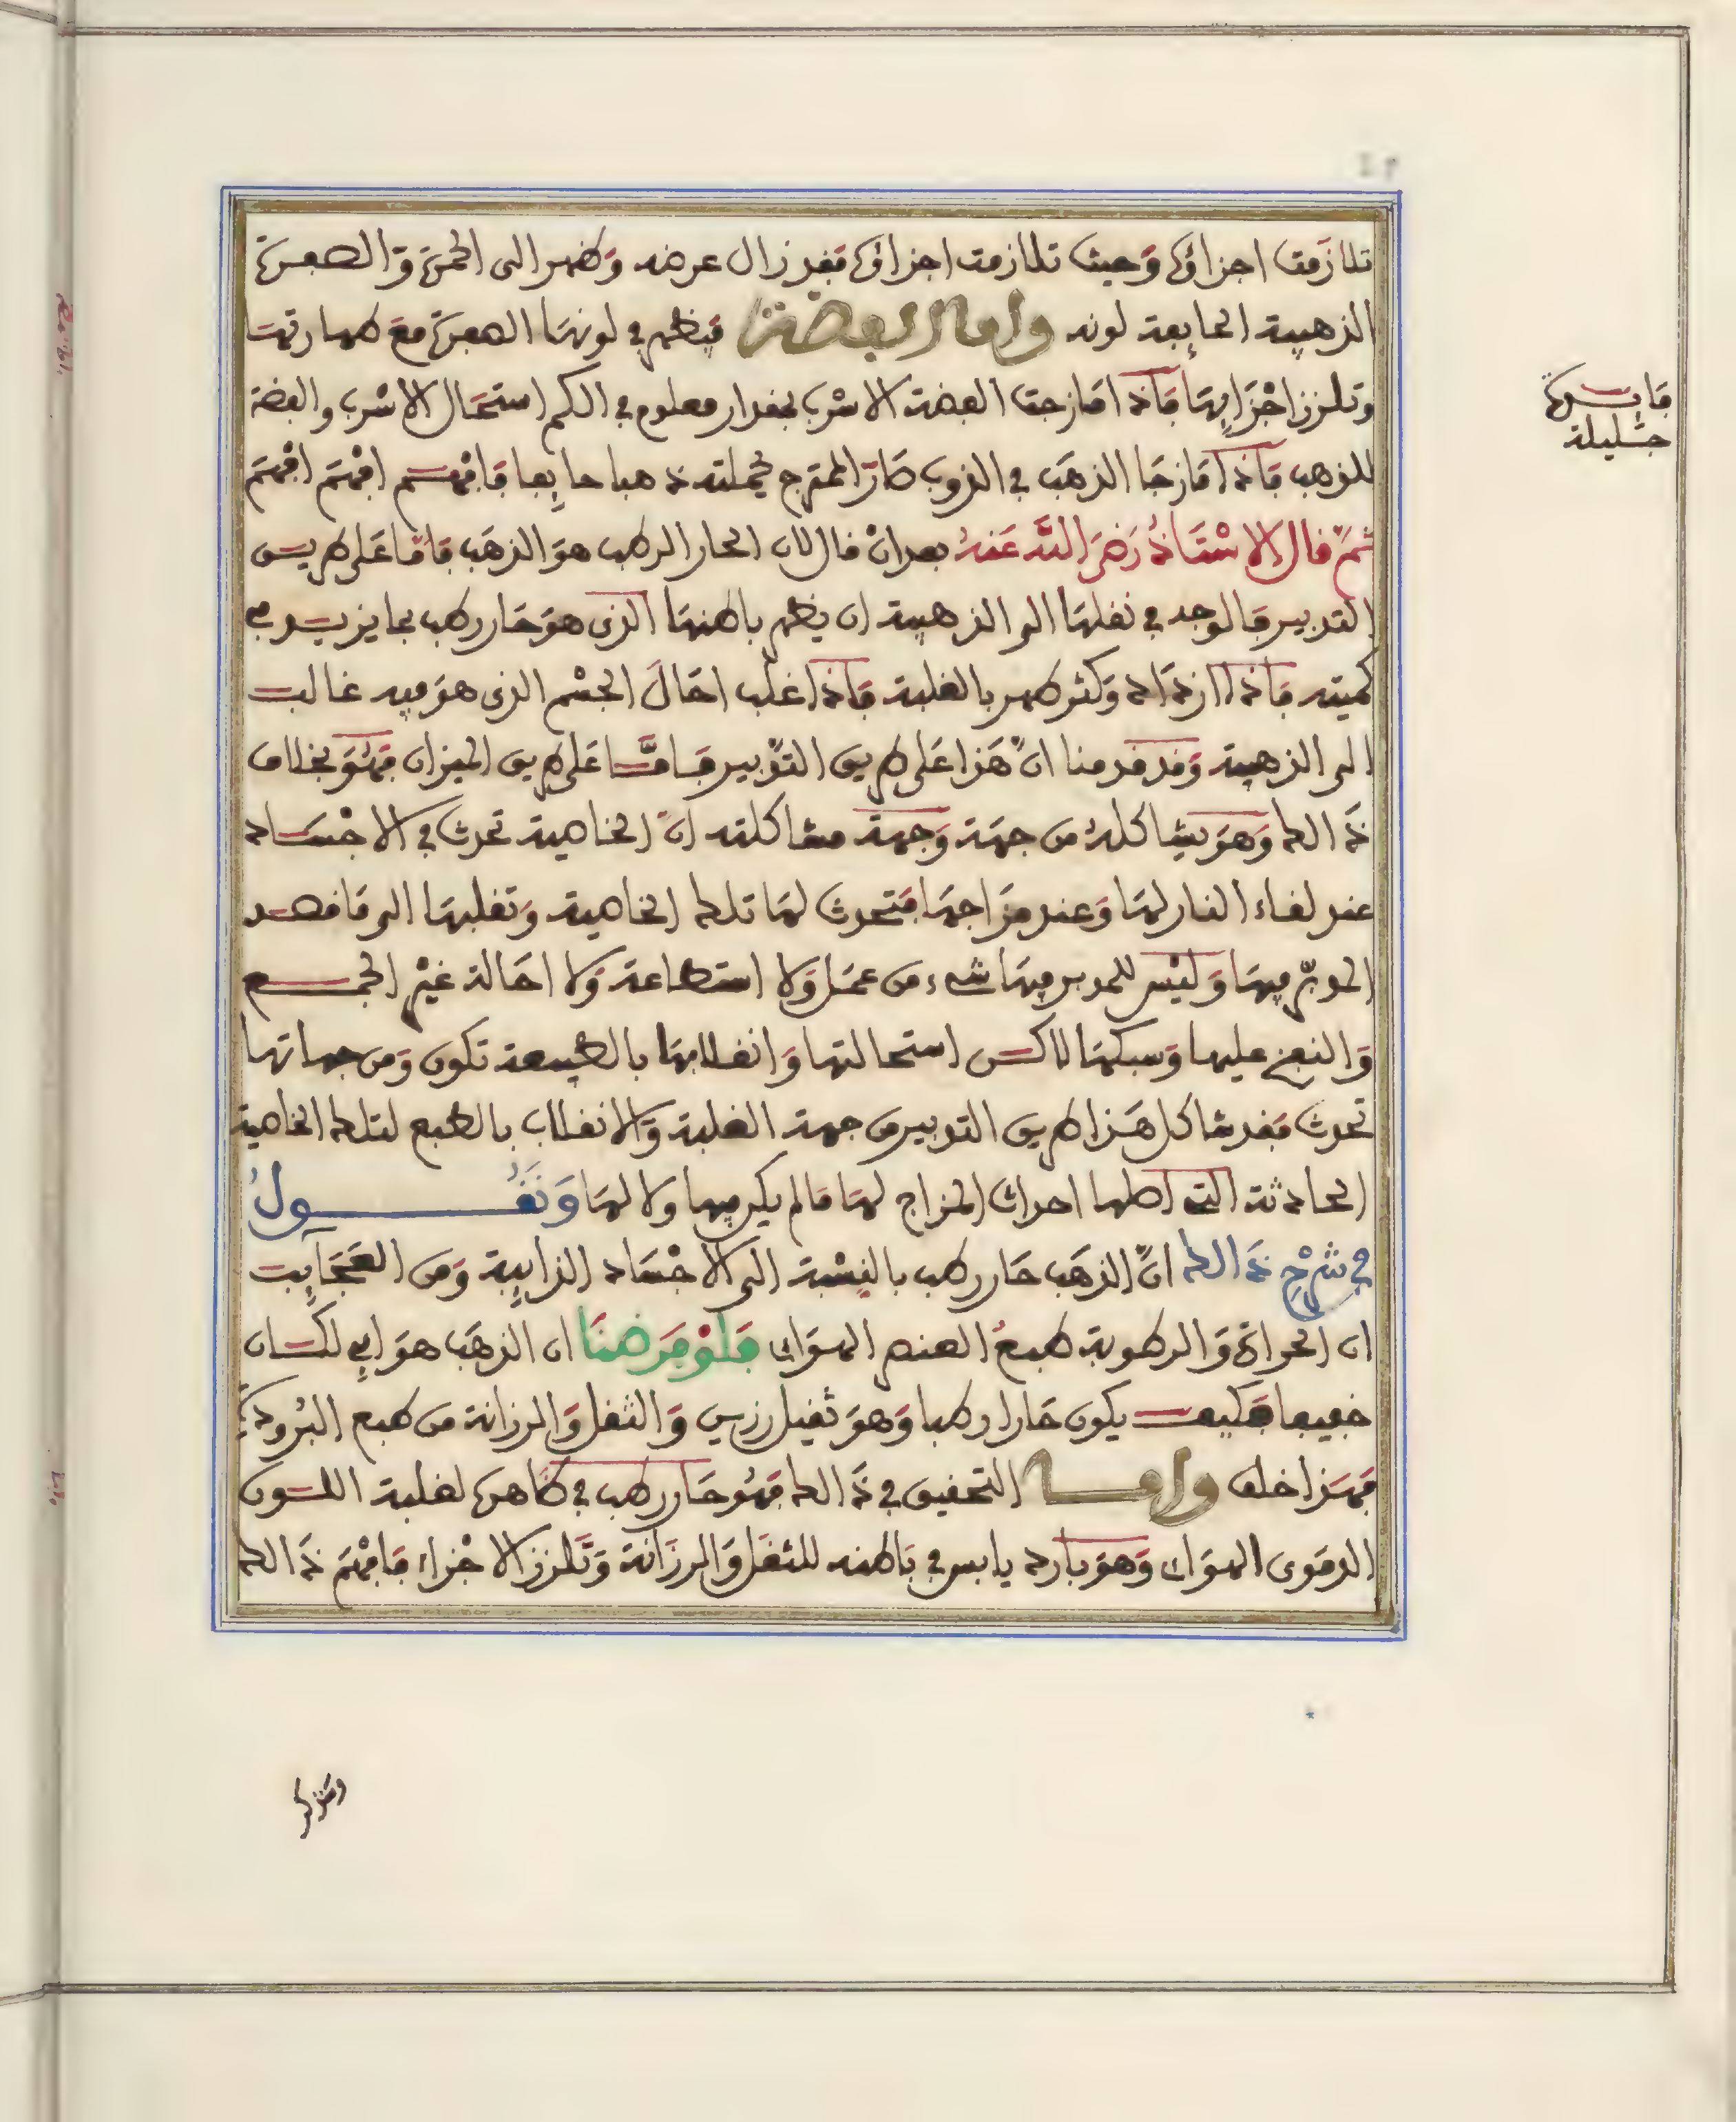 تلازمت اجزاؤه وحيث تلازمت اجزاؤه فقد زال عرضه وظهر الى الحمرة والصفرة
الذهبية الحايفة لونه واما الفضة فيظهر في لونها الصفرة مع طهارتها
وتلزز اجزايها فاذا مازجت الفضة الاسرب بمقدار معلوم في الكم استحال الاسرب والفضة
للذهب فاذا مازجا الذهب في الذوب صار الممتزج بجملته ذهبا حايفا فافهم افهم افهم
ثم قال الاستاذ رضي الله عنه بعد ان قال لان الحار الرطب هو الذهب فاما على طريق
التدبير فالوجه في نقلها الى الذهبية ان يظهر باطنها الذي هو حار رطب بما يزيد في
كميته فاذا ازداد وكثر ظهر بالغلبة فاذا غلب احال الجسم الذي هو فيه غالب
الى الذهبية وقد قدمنا ان هذا على طريق التدبير فاما على طريق الميزان فهو بخلاف
ذالك وهو يشاكله من جهة وجهة مشاكلته ان الخاصية تحدث في الاجساد
عند لقاء النار لها وعند مزاجها فتحدث لها تلك الخاصية وتقلبها الى ما قصد
المدبر فيها وليس للمدبر فيها شيء من عمل ولا استطاعة ولا احالة غير الجمع
والنفخ عليها وسبكها لاكن استحالتها وانقلابها بالطبيعة تكون ومن جهاتها
تحدث فقد شاكل هذا طريق التدبير من جهة الغلبة والانقلاب بالطبع لتلك الخاصية
الحادثة التي اصلها احداث المزاج لها ما لم يكن فيها ولا لها ونقول
في شرح ذالك ان الذهب حار رطب بالنسبة الى الاجساد الذايبة ومن العجايب
ان الحرارة والرطوبة طبع العنصر الهواي فلو فرضنا ان الذهب هواي لكان
خفيفا فكيف يكون حارا رطبا وهو ثقيل رزين والثقل والرزانة من طبع البرودة
فهذا خلف واما التحقيق في ذالك فهو حار رطب في ظاهره لغلبة اللون
الدموي الهواي وهو بارد يابس في باطنه للثقل والرزانة وتلزز الاجزاء فافهم ذالك
فايدة
جليلة